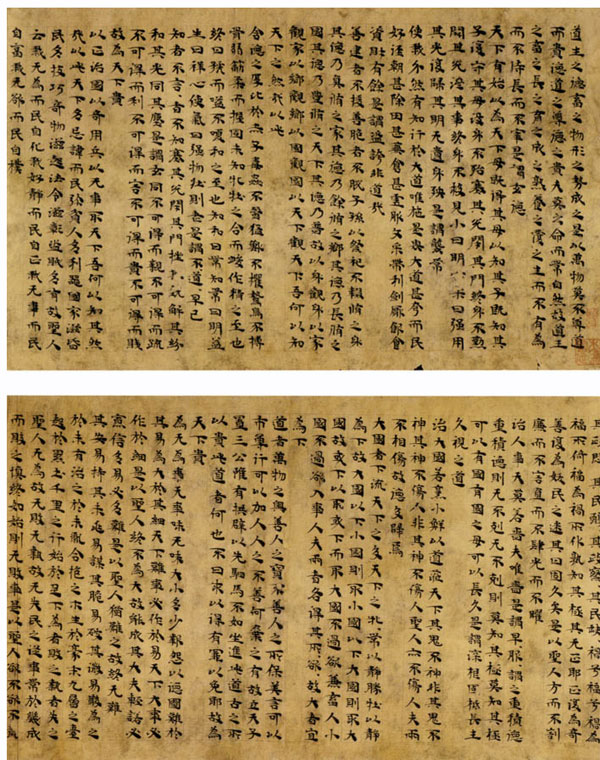 道生之德畜之物形之势成之是以萬物莫不尊道
而貴德道之尊德之貴夫莫之命而常自然故道生
之畜之長之育之成之熟之養之覆之生而不有為
而不恃長而不宰是謂玄德
天下有始以為天下母既得其母以知其子既知其
子復守其母沒身不殆塞其兌閉其門終身不勤
開其兌濟其事終身不救見小曰明守柔曰强用
其光復歸其明无遺身殃是謂襲常
使我介然有知行於大道唯施是畏大道甚夷而民
好徑朝甚除田甚蕪倉甚虛服文采帶利劍厭飲食
資財有餘是謂盜誇非道哉
善建者不拔善抱者不脫子孫以祭祀不輟脩之身
其德乃真脩之家其德乃餘脩之鄉其德乃長脩之
國其德乃豐脩之天下其德乃普故以身觀身以家
觀家以鄉觀鄉以國觀國以天下觀天下吾何以知
天下之然哉以此
含德之厚比於赤子毒蟲不螫猛獸不據攫鳥不搏
骨弱筋柔而握固未知牝牡之合而峻作精之至也
終日號而嗌不嗄和之至也知和曰常知常曰明益
生曰祥心使氣曰强物壯則老是謂不道早已
知者不言言者不知塞其兌閉其門挫其銳解其紛
和其光同其塵是謂玄同不可得而親不可得而疏
不可得而利不可得而害不可得而貴不可得而賤
故為天下貴
以正治國以奇用兵以无事取天下吾何以知其然
哉以此天下多忌諱而民弥貧人多利器國家滋昏
民多技巧奇物滋起法令滋彰盜賊多有故聖人
云我无為而民自化我好靜而民自正我无事而民
自富我无欲而民自樸
其民醇其政察其民缺禍兮福
福所倚福兮禍所伏孰知其極其无正耶正復為奇
善復為訞民之迷其日固久矣是以聖人方而不割
廉而不害直而不肆光而不曜
治人事天莫若嗇夫唯嗇是謂早服謂之重積德
重積德則无不剋无不剋則莫知其極莫知其極
可以有國有國之母可以長久是謂深根固柢長生
久視之道
治大國若烹小鮮以道莅天下其鬼不神非其鬼不
神其神不傷人非其神不傷人聖人亦不傷人夫兩
不相傷故德交歸焉
大國者下流天下之交天下之牝牝常以靜勝牡以靜
為下故大國以下小國則取小國小國以下大國則取大
國故或下以取或下而取大國不過欲兼畜人小
國不過欲入事人夫兩者各得其所欲故大者宜
為下
道者萬物之奧善人之寶不善人之所保美言可以
市尊行可以加人人之不善何棄之有故立天子
置三公雖有拱璧以先駟馬不如坐進此道古之所
以貴此道者何也不曰求以得有罪以免耶故為
天下貴
為无為事无事味无味大小多少報怨以德圖難於
其易為大於其細天下難事必作於易天下大事必
作於細是以聖人終不為大故能成其大夫輕諾必
寡信多易必多難是以聖人猶難之故終无難
其安易持其未兆易謀其脆易破其微易散為之
於未有治之於未亂合抱之木生於豪末九層之臺
起於累土千里之行始於足下為者敗之執者失之
聖人无為故无敗无執故无失民之從事常於幾成
而敗之慎終如始則无敗事是以聖人欲不欲不貴